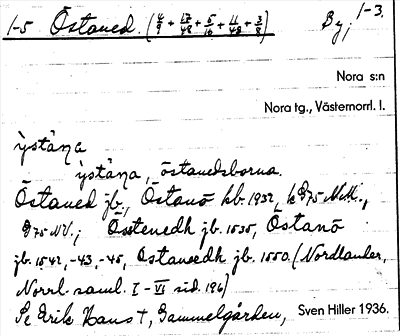 1-5 Östaned. (4/9 + 17/48 + 5/16 + 11/48 + 3/8) By, 1-3.
Nora s:n
Nora tg., Västernorrl. l.
ỳstàna
ỳstàna, östanedsborna.
Östaned jb., Östanö kb. 1932, k G75 N.M.,
G75 NV.; Östenedh jb. 1535, Östanö
jb. 1542, -43, -45, Östaneedh jb. 1550. (Nordlander,
Norrl. saml. I - VI sid. 196)
Se Erik Hans †, Gammelgården, Sven Hiller 1936.